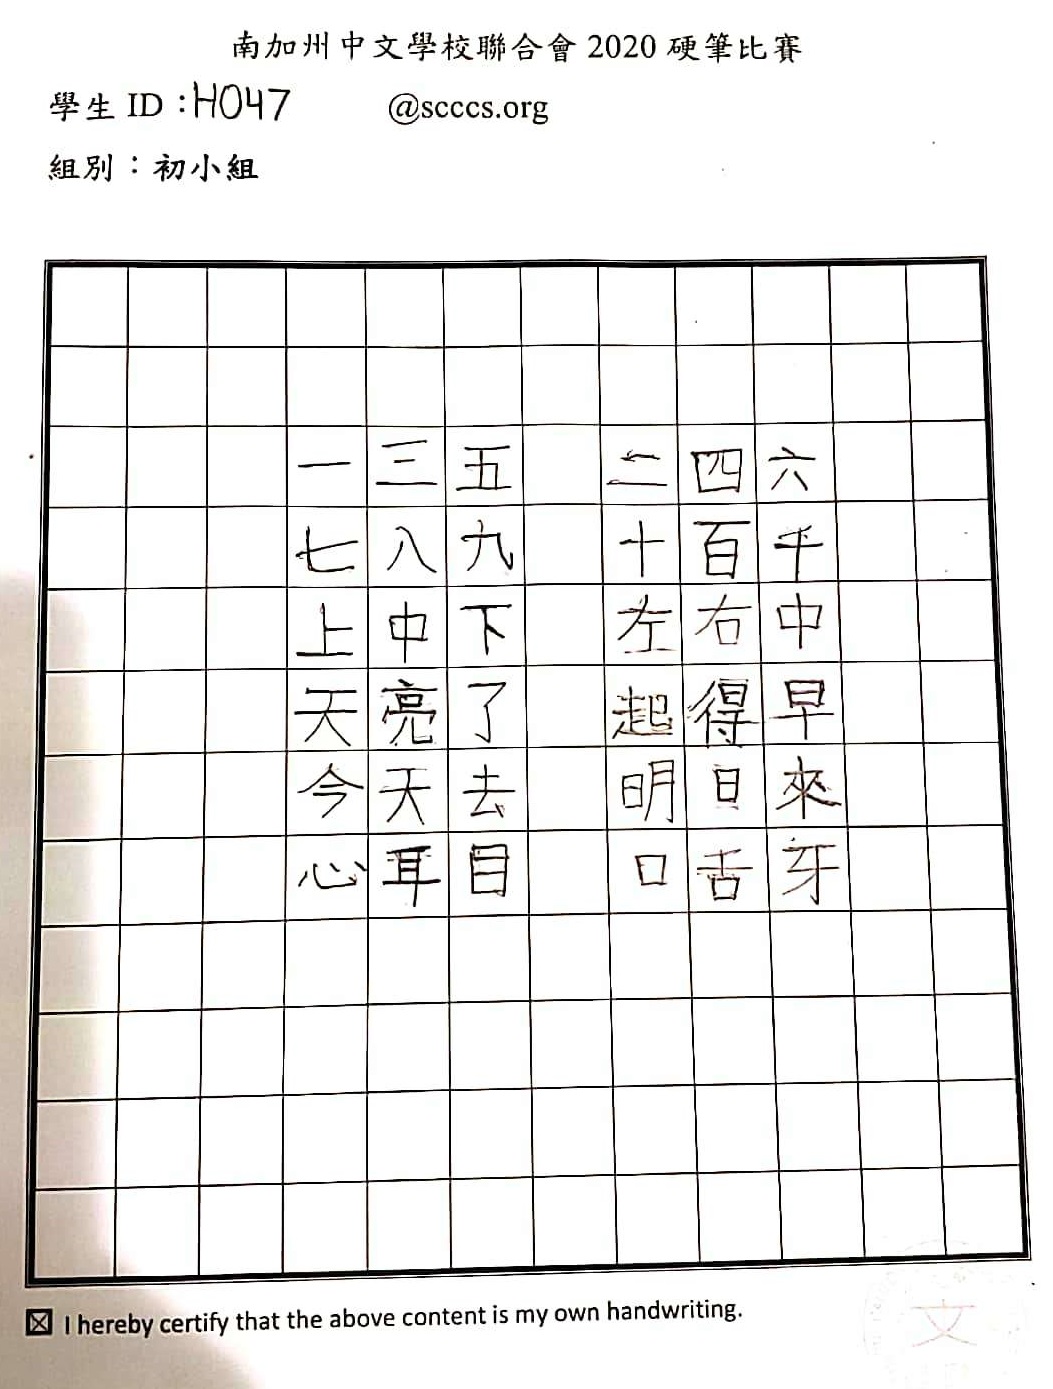 南加州中文學校聯合會 2020 硬筆比賽
學生 ID：H047 @scccs.org
組別：初小組
一三五 二四六
七八九 十百千
上中下 左右中
天亮了 起得早
今天去 明日來
心耳目 口舌牙
I hereby certify that the above content is my own handwriting.
文